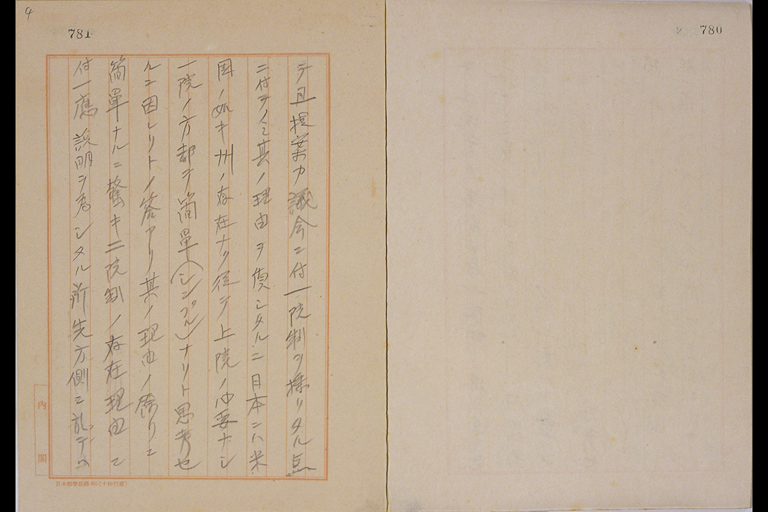 780
781
9
テ且提案カ議会ニ付一院制ヲ採リタル点
ニ付テノミ其ノ理由ヲ質シタルニ日本ニハ米
国ノ如キ州ノ存在ナク従テ上院ノ必要ナシ
一院ノ方却テ簡単(シンプル)ナリト思考セ
ルニ因レリトノ答アリ其ノ理由ノ余リニ
簡単ナルニ驚キ二院制ノ存在理由ニ
付一応説明ヲ為シタル所先方側ニ於テ
内閣